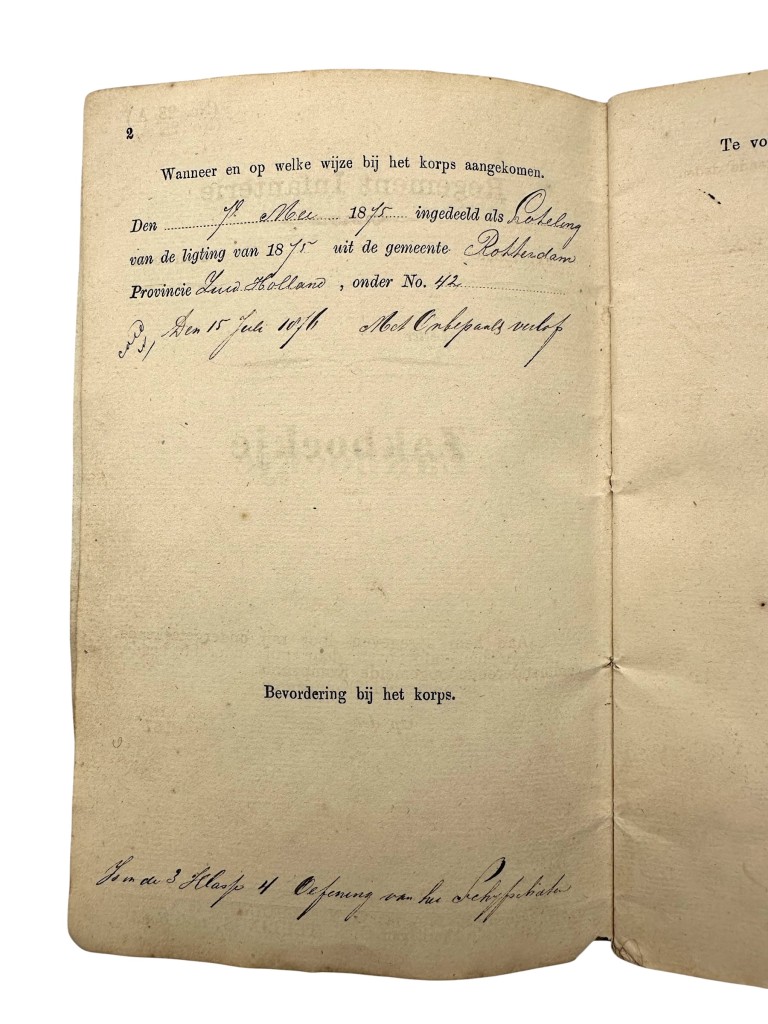 2
Wanneer en op welke wijze bij het korps aangekomen.
Den 7 Mei 1875 ingedeeld als Loteling
van de ligting van 1875 uit de gemeente Rotterdam
Provincie Zuid Holland, onder No. 42
Den 15 Juli 1876 Met Onbepaald verlof
Bevordering bij het korps.
Is in de 3 Klasse 4 Oefening van het
Te vo